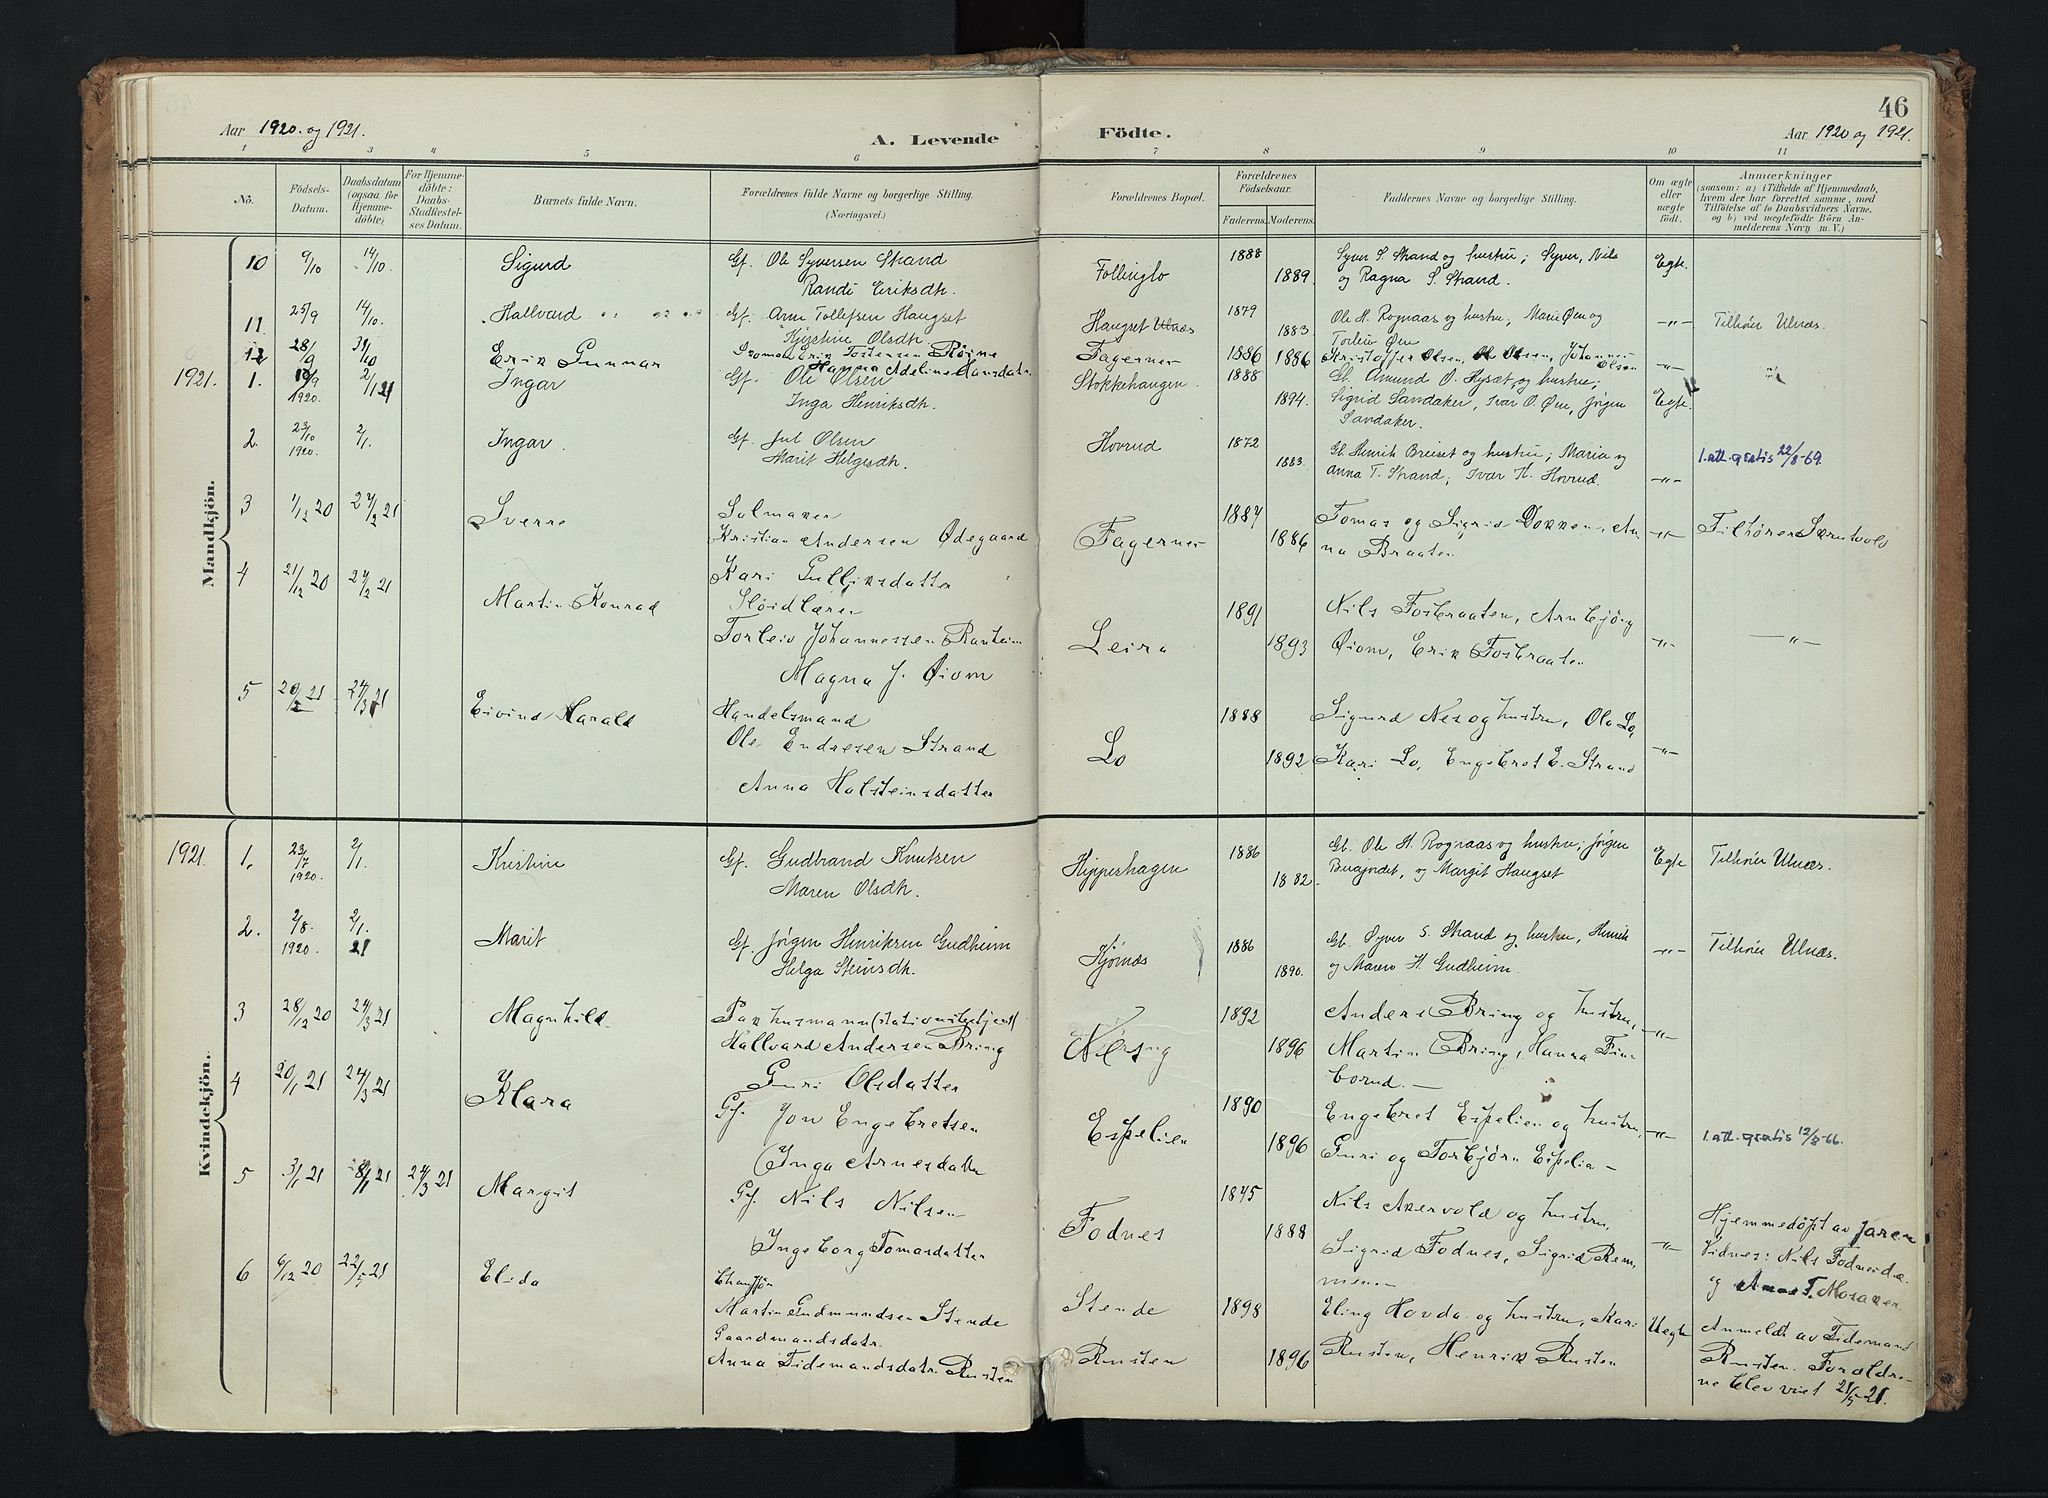 46
Aar 1920. og 1921.
A. Levende Födte.
Aar 1920 og 1921.
1 2 3 4 5 6 7 8 9 10 11
No.
Födsels-Datum.
Daabsdatum (ogsaa for Hjemmedöbte)
For Hjemmedöbte: Daabs-Stadfestelses Datum.
Barnets fulde Navn.
Forældrenes fulde Navne og borgerlige Stilling. (Næringsvei.)
Forældrenes Bopæl.
Forældrenes Födselsaar.
Faderens. Moderens.
Faddernes Navne og borgerlige Stilling.
Om ægte eller uægte födt.
Anmærkninger
(saasom: a) i Tilfælde af Hjemmedaab, hvem der har forrettet samme, med Tilföielse af to Daabsvidners Navne, og b) ved uægtefödte Börn Anmelderens Navn m. V.)
Mandkjön.
10 9/10 14/10. Sigurd Gf. Ole Syversen Strand
Randi Eriksdtr. Follinglo 1888 1889. Syver S. Strand og hustru; Syver, Nils
og Ragna S. Strand. Egte.
11. 25/9 14/10. Hallvard Gf. Arne Tollefsen Haugset
Kjerstine Olsdtr. Haugset Ulnæs 1879 1883. Ole H. Rognaas og hustru, Marie Øen og
Torleiv Øen — " — Tilhører Ulnæs.
12 28/9 31/10 Erik Gunnar Erik Tostensen Røine
Hanna Adeline Hansdatr. Fagernes 1886 1886 Kristoffer Olsen, Ole Olsen, Johannes
Olsen — " —
1921. 1. 19/9 1920. 2/1 21 Ingar Gf. Ole Olsen
Inga Henriksdtr. Stokkehaugen 1888 1894. Gb. Amund O. Hysæt og hustru;
Sigrid Sandaker, Ivar O. Øen, Jørgen
Sandaker. Egte.
2. 23/10 1920. 2/1. Ingar. Gf. Jul Olsen
Marit Helgesdtr. Hovrud 1872 1883. Gb. Henrik Breiset og hustru; Maria og
Anna T. Strand; Ivar H. Hovrud. — " — 1. att. gratis 22/8-69.
3 1/12 20 27/2 21 Sverre Salmaker
Kristian Andersen Ødegaard
Kari Gulliksdatter Fagernes 1887 1886 Tomas og Sigrid Dokken, An
na Braaten — " — Tilhører Svennesvold
4 21/12 20 27/2 21 Martin Konrad Sløidlærer
Torleiv Johannessen Ranheim
Magna J. Øiom Leira 1891 1893 Nils Fosbraaten, Arnbjørg
Øiom, Erik Fosbraaten — " — — " —
5 20/2 21 24/3 21 Eivind Harald Handelsmand
Ole Endresen Strand
Anna Halsteinsdatter Lo 1888 1892 Sigurd Nes og hustru, Ole Lo,
Kari Lo, Engebret E. Strand — " —
Kvindekjön.
1921. 1. 23/7 1920. 2/1. Kristine Gf. Gudbrand Knutsen
Maren Olsdtr. Hippershagen 1886 1882. Gb. Ole H. Rognaas og hustru; Jørgen
Buajordet, og Margit Haugset Egte Tilhører Ulnæs.
2. 2/8. 1920. 2/1. 21 Marit Gf. Jørgen Henriksen Gudheim
Helga Steinsdtr. Kjørnæs 1886 1890. Gb. Syver S. Strand og hustru, Henrik
og Maren H. Gudheim. — " — Tilhører Ulnæs.
3 28/12 20 24/3 21 Magnhild Pakhusmann (stationsbetjent)
Hallvard Andersen Bring
Guri Olsdatter 1892 1896 Anders Bring og hustru,
Martin Bring, Hanna Fin-
borud. — — " —
4 20/1 21 24/3 21 Klara Gf. Jon Engebretsen
Inga Arnesdatter Espelien 1890 1896 Engebret Espelien og hustru,
Guri og Torbjørn Espelien — — " — 1. att. gratis 12/8-66.
5 3/1 21 8/1 21 24/3 21 Margit Gf. Nils Nilsen
Ingeborg Tomasdatter Fodnes 1845 1888 Nils Akervold og hustru,
Sigrid Fodnes, Sigrid Rem
men — " — Hjemmedøpt av Jaren
Vidnes: Nils Fodnes
og Anne T. Moraker
6 6/12 20 22/5 21 Elida
Martin Gudmundsen Stende
Gaardmandsdatr.
Anna Tidemandsdatr. Rusten Stende
Rusten 1898 1896 Eling Hovda og hustru, Kari
Rusten, Henrik Rusten Uegte Anmeldt av Tidemand
Rusten. Foreldre-
ne blev viet 21/5 21.